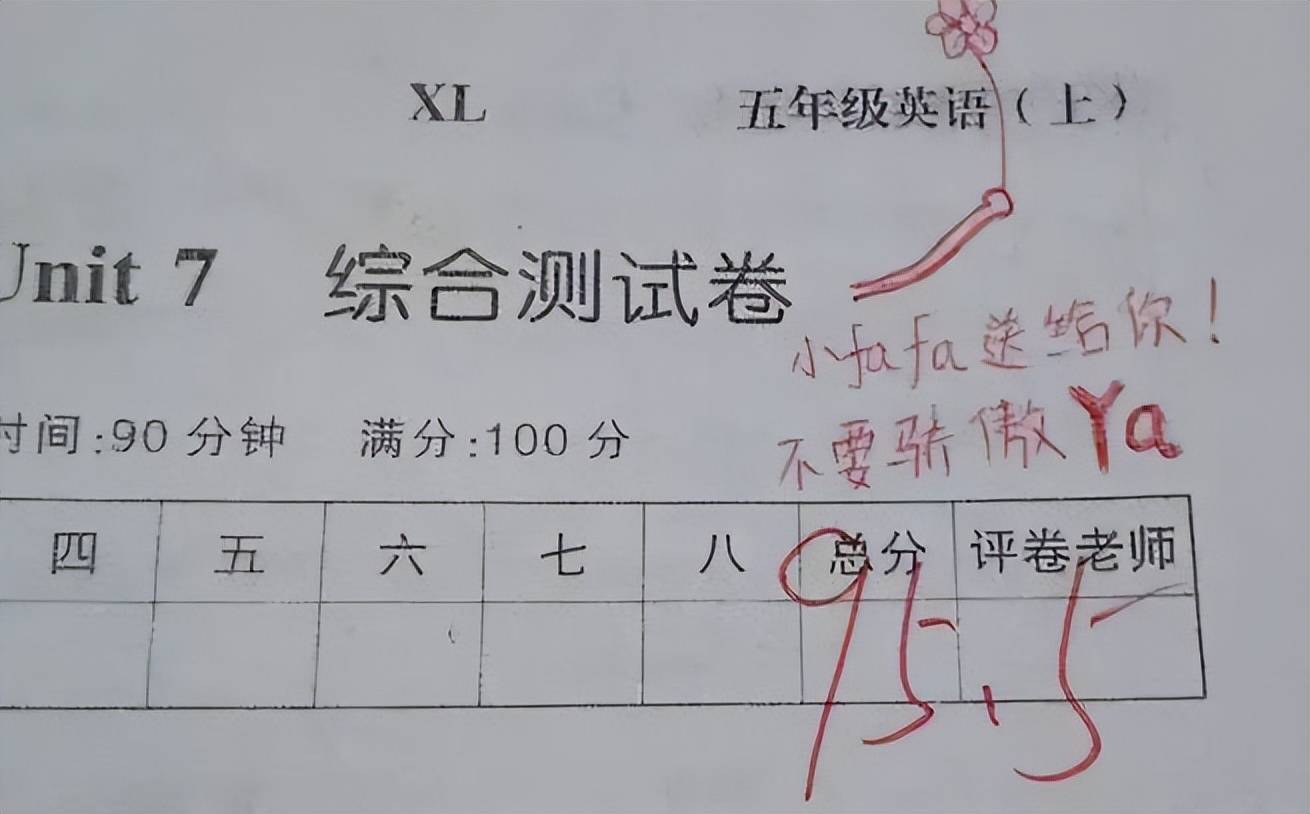 XL 五年级英语（上）
Unit 7 综合测试卷
小fafa送给你！
时间:90 分钟 满分:100 分
不要骄傲Ya
四 五 六 七 八 总分 评卷老师
95.5